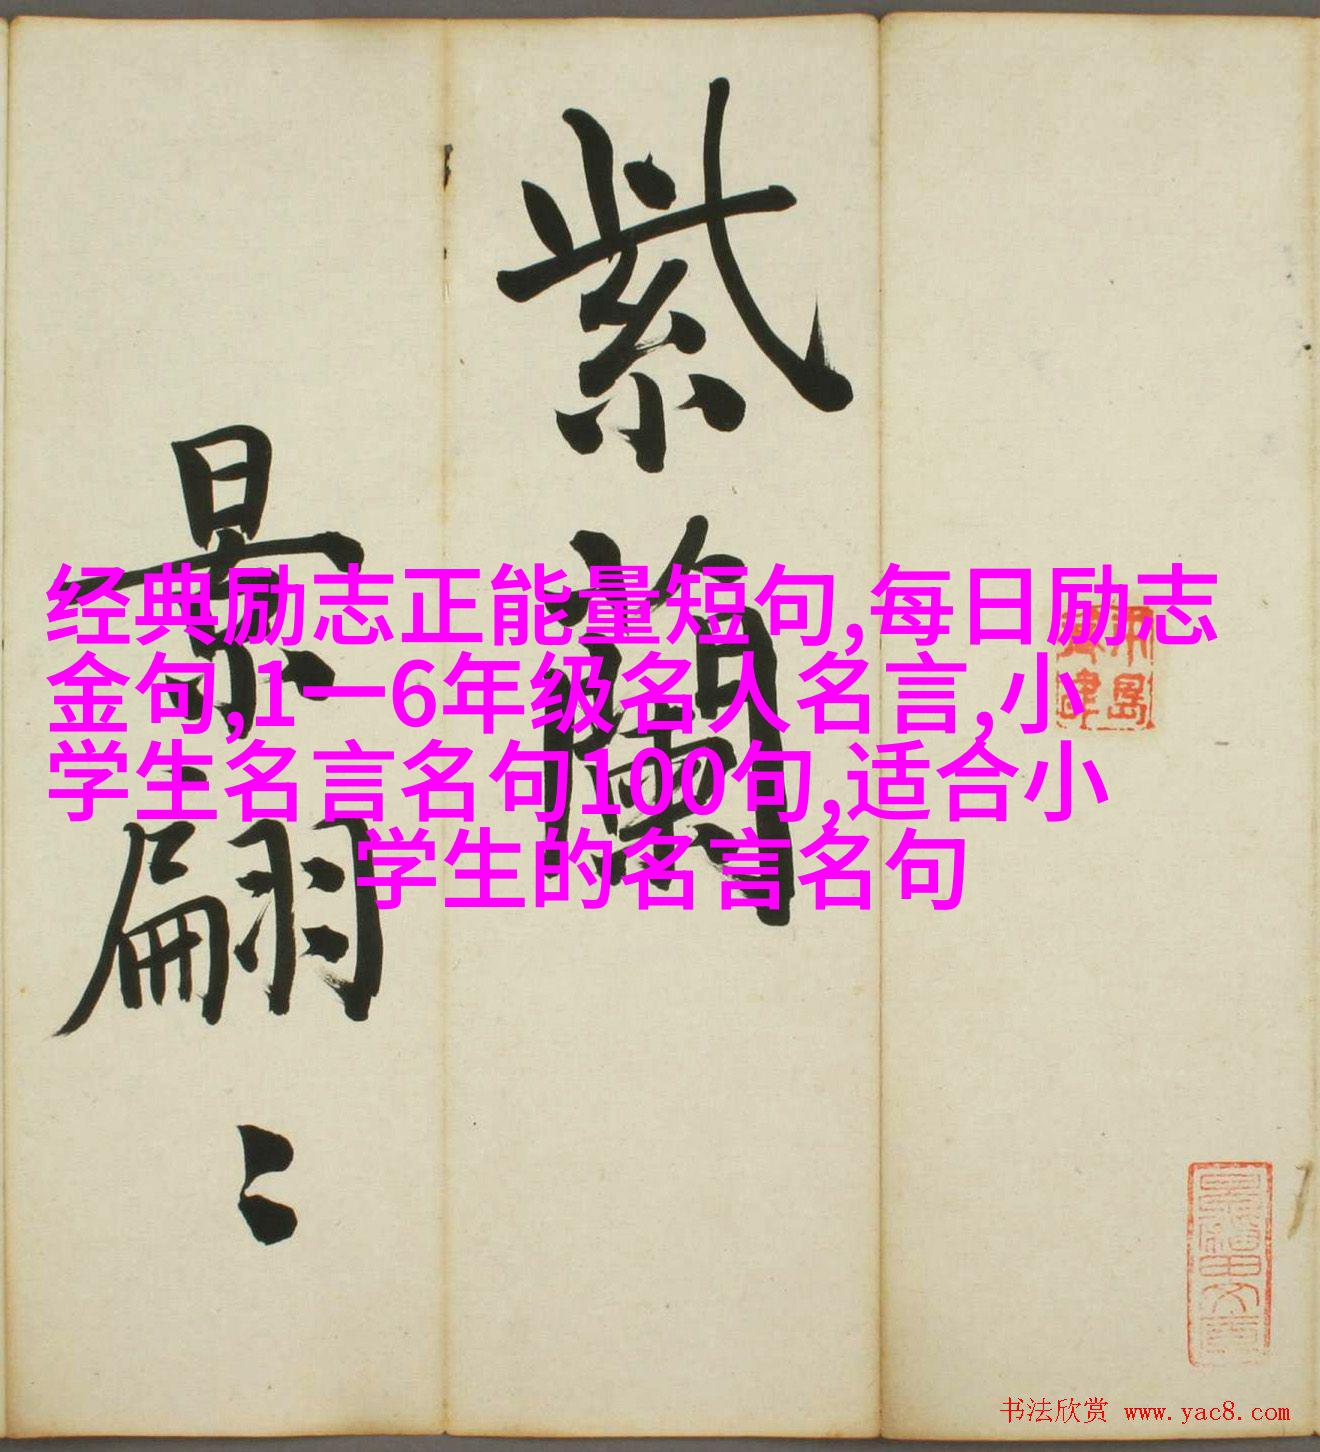 紫蘭
景翩〻
经典励志正能量短句,每日励志
金句,1一6年级名人名言,小
学生名言名句100句,适合小
学生的名言名句
书法欣赏 www.yac8.com